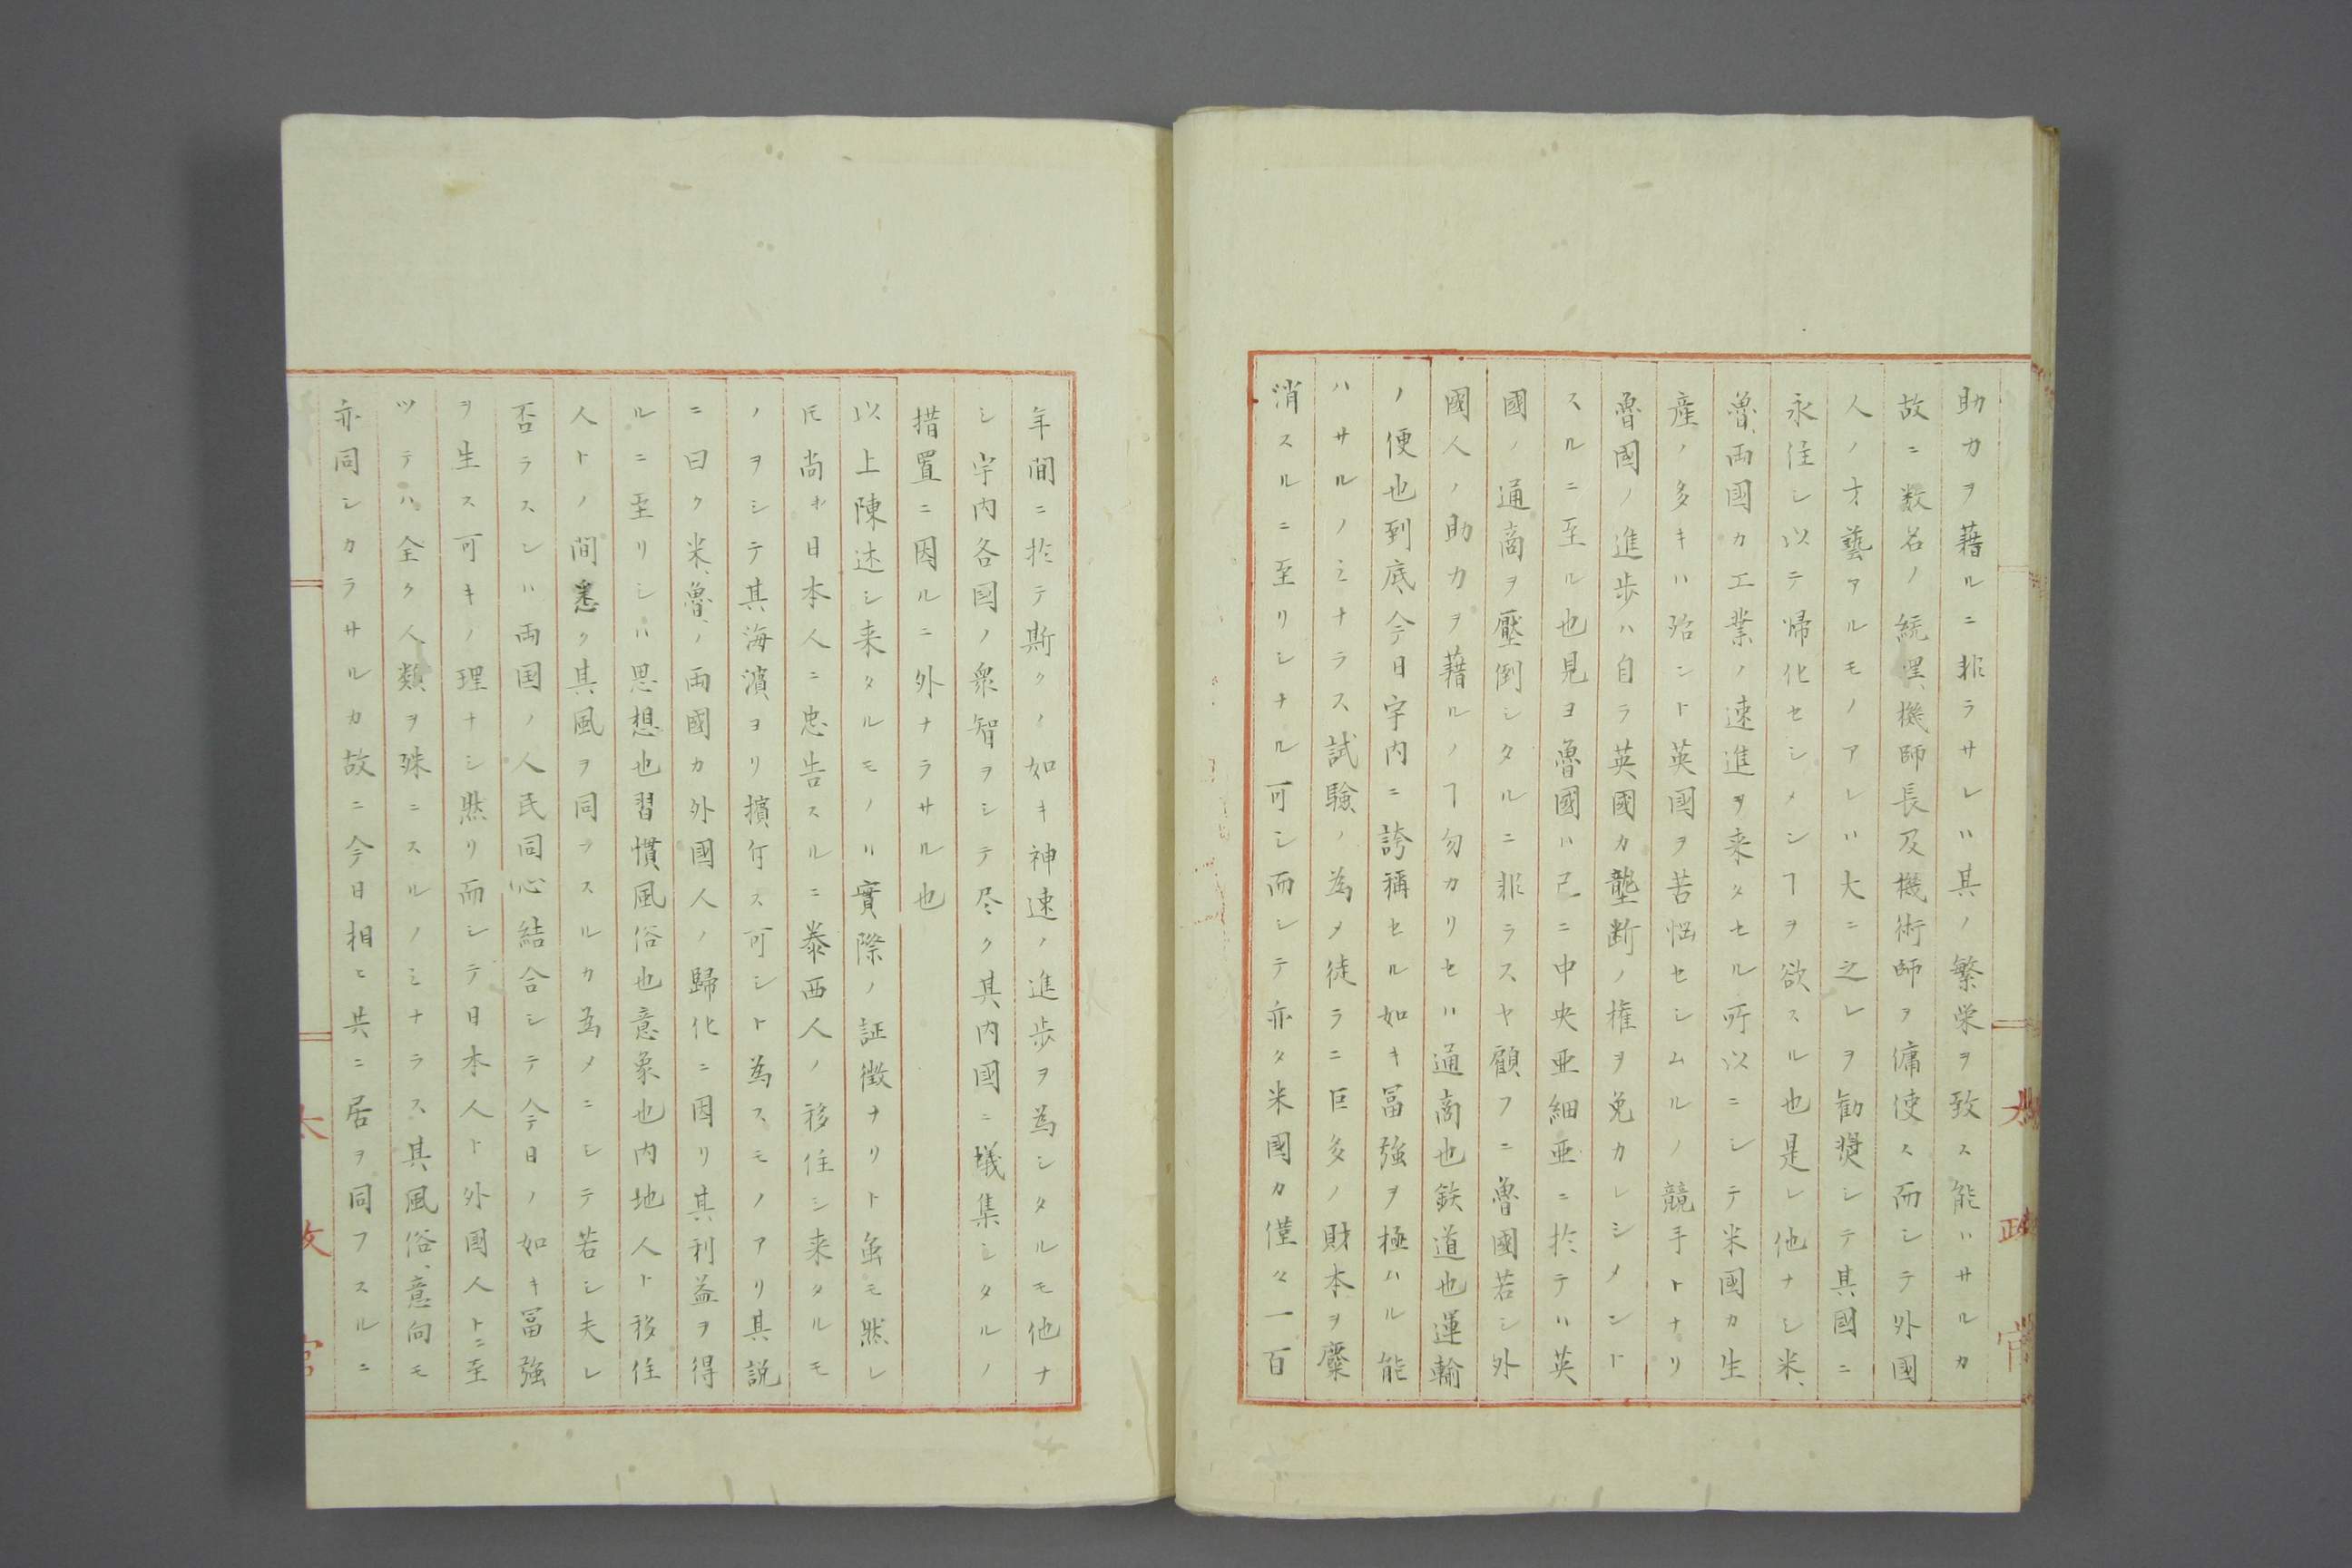 助力ヲ藉ルニ非ラサレハ其ノ繁栄ヲ致ス能ハサルカ
故ニ数名ノ統理、機師長及機術師ヲ傭使ス而シテ外國
人ノ才藝アルモノアレハ大ニ之レヲ勧奨シテ其國ニ
永住シ以テ帰化セシメンヿヲ欲スル也是レ他ナシ米、
魯、両國カ工業ノ速進ヲ来タセル所以ニシテ米國カ生
産ノ多キハ殆ント英国ヲ苦悩セシムルノ競手トナリ
魯國ノ進歩ハ自ラ英國カ壟断ノ権ヲ免カレシメント
スルニ至ル也見ヨ魯國ハ已ニ中央亜細亜ニ於テハ英
國ノ通商ヲ壓倒シタルニ非ラスヤ顧フニ魯國若シ外
國人ノ助力ヲ藉ルノヿ勿カリセハ通商也鉄道也運輸
ノ便也到底今日宇内ニ誇稱セル如キ冨強ヲ極ハル能
ハサルノミナラス試験ノ為メ徒ラニ巨多ノ財本ヲ糜
消スルニ至リシナル可シ而シテ亦タ米國カ僅々一百
年間ニ於テ斯クノ如キ神速ノ進歩ヲ為シタルモ他ナ
シ宇内各國ノ衆智ヲシテ尽ク其内國ニ蟻集シタルノ
措置ニ因ルニ外ナラサル也
以上陳述シ来タルモノハ實際ノ証徴ナリト虽モ然レ
𪜈尚ホ日本人ニ忠告スルニ泰西人ノ移住シ来タルモ
ノヲシテ其海濱ヨリ擯斥ス可シト為スモノアリ其説
ニ曰ク米、魯、ノ両國カ外國人ノ歸化ニ因リ其利益ヲ得
ルニ至リシハ思想也習慣風俗也意象也内地人ト移住
人トノ間悉ク其風ヲ同フスルカ為メニシテ若シ夫レ
否ラスンハ両国ノ人民同心結合シテ今日ノ如キ冨強
ヲ生ス可キノ理ナシ然リ而シテ日本人ト外國人トニ至
ツテハ全ク人類ヲ殊ニスルノミナラス其風俗、意向モ
亦同シカラサルカ故ニ今日相ヒ共ニ居ヲ同フスルニ
太政官